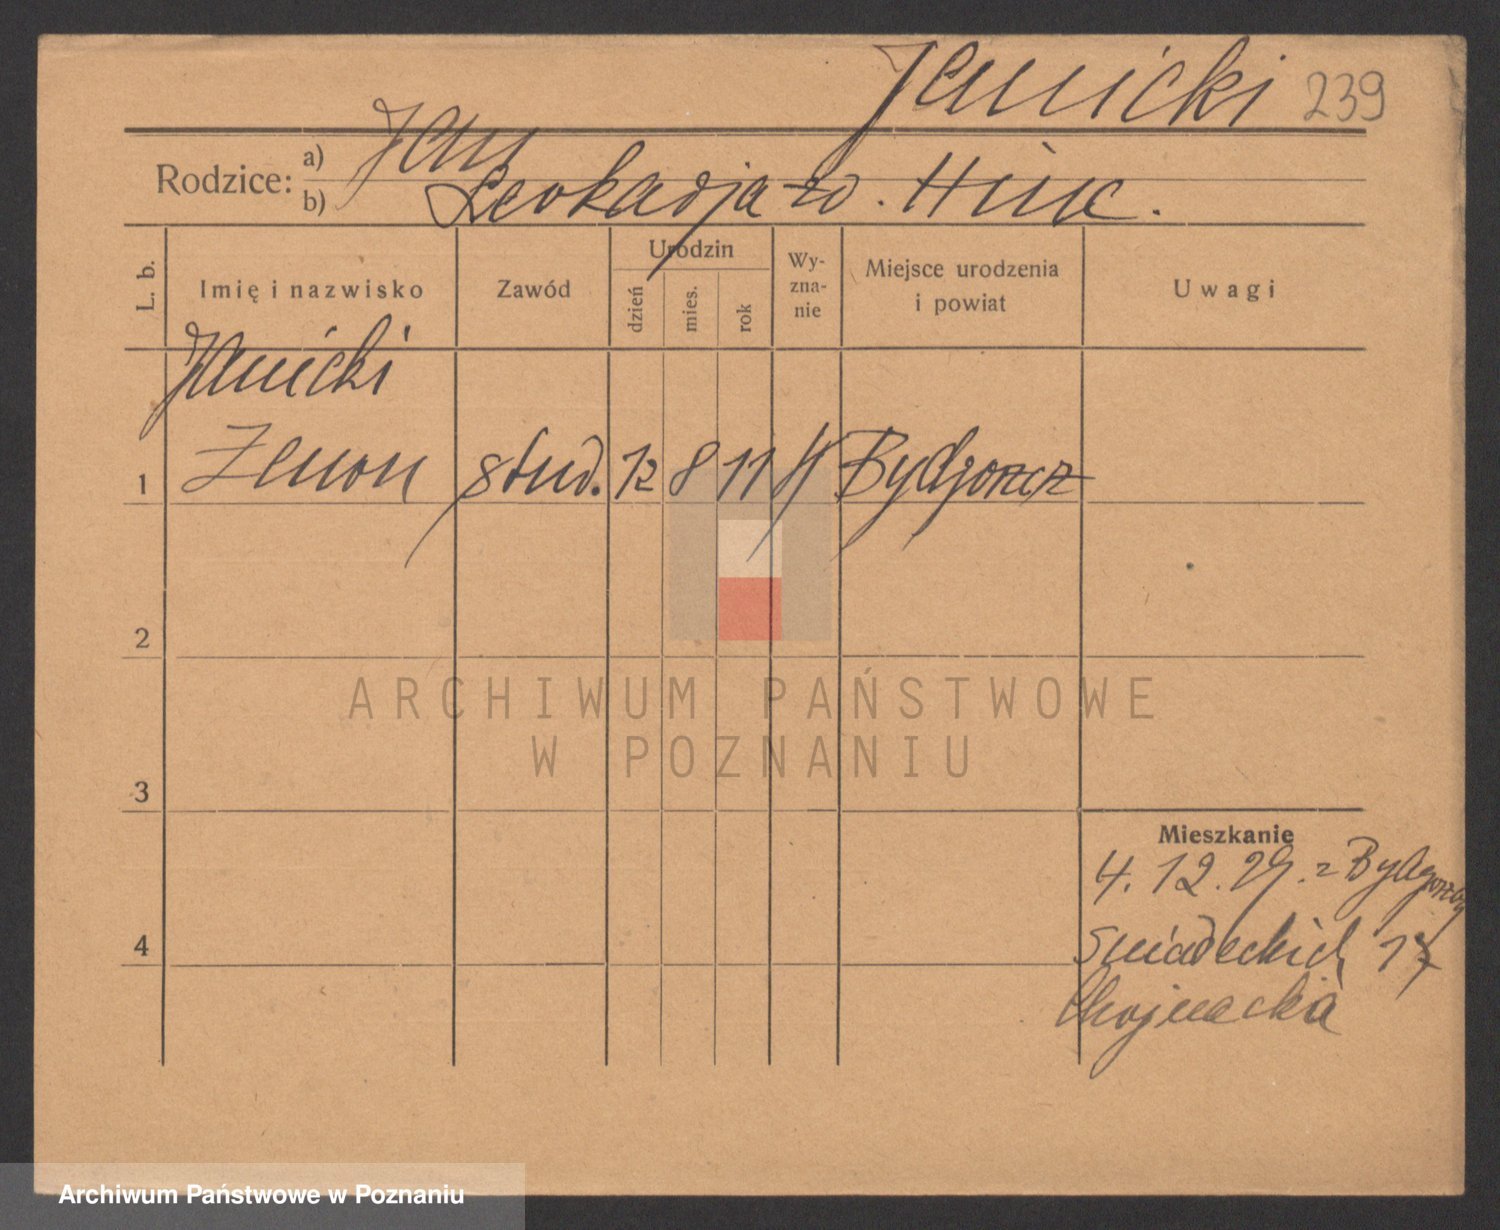 Janicki 239
Rodzice: a) Jan
b) Leokadja zd. Hinc.
L. b. Imię i nazwisko Zawód Urodzin dzień mies. rok Wyznanie Miejsce urodzenia i powiat Uwagi
Janicki
1 Zenon stud. 12 8 11 Bydgoszcz
2
3
4
Mieszkanie
4.12.29. z Bydgoszczy
Sniadeckich 17
Chojnacka
ARCHIWUM PAŃSTWOWE
W POZNANIU
Archiwum Państwowe w Poznaniu